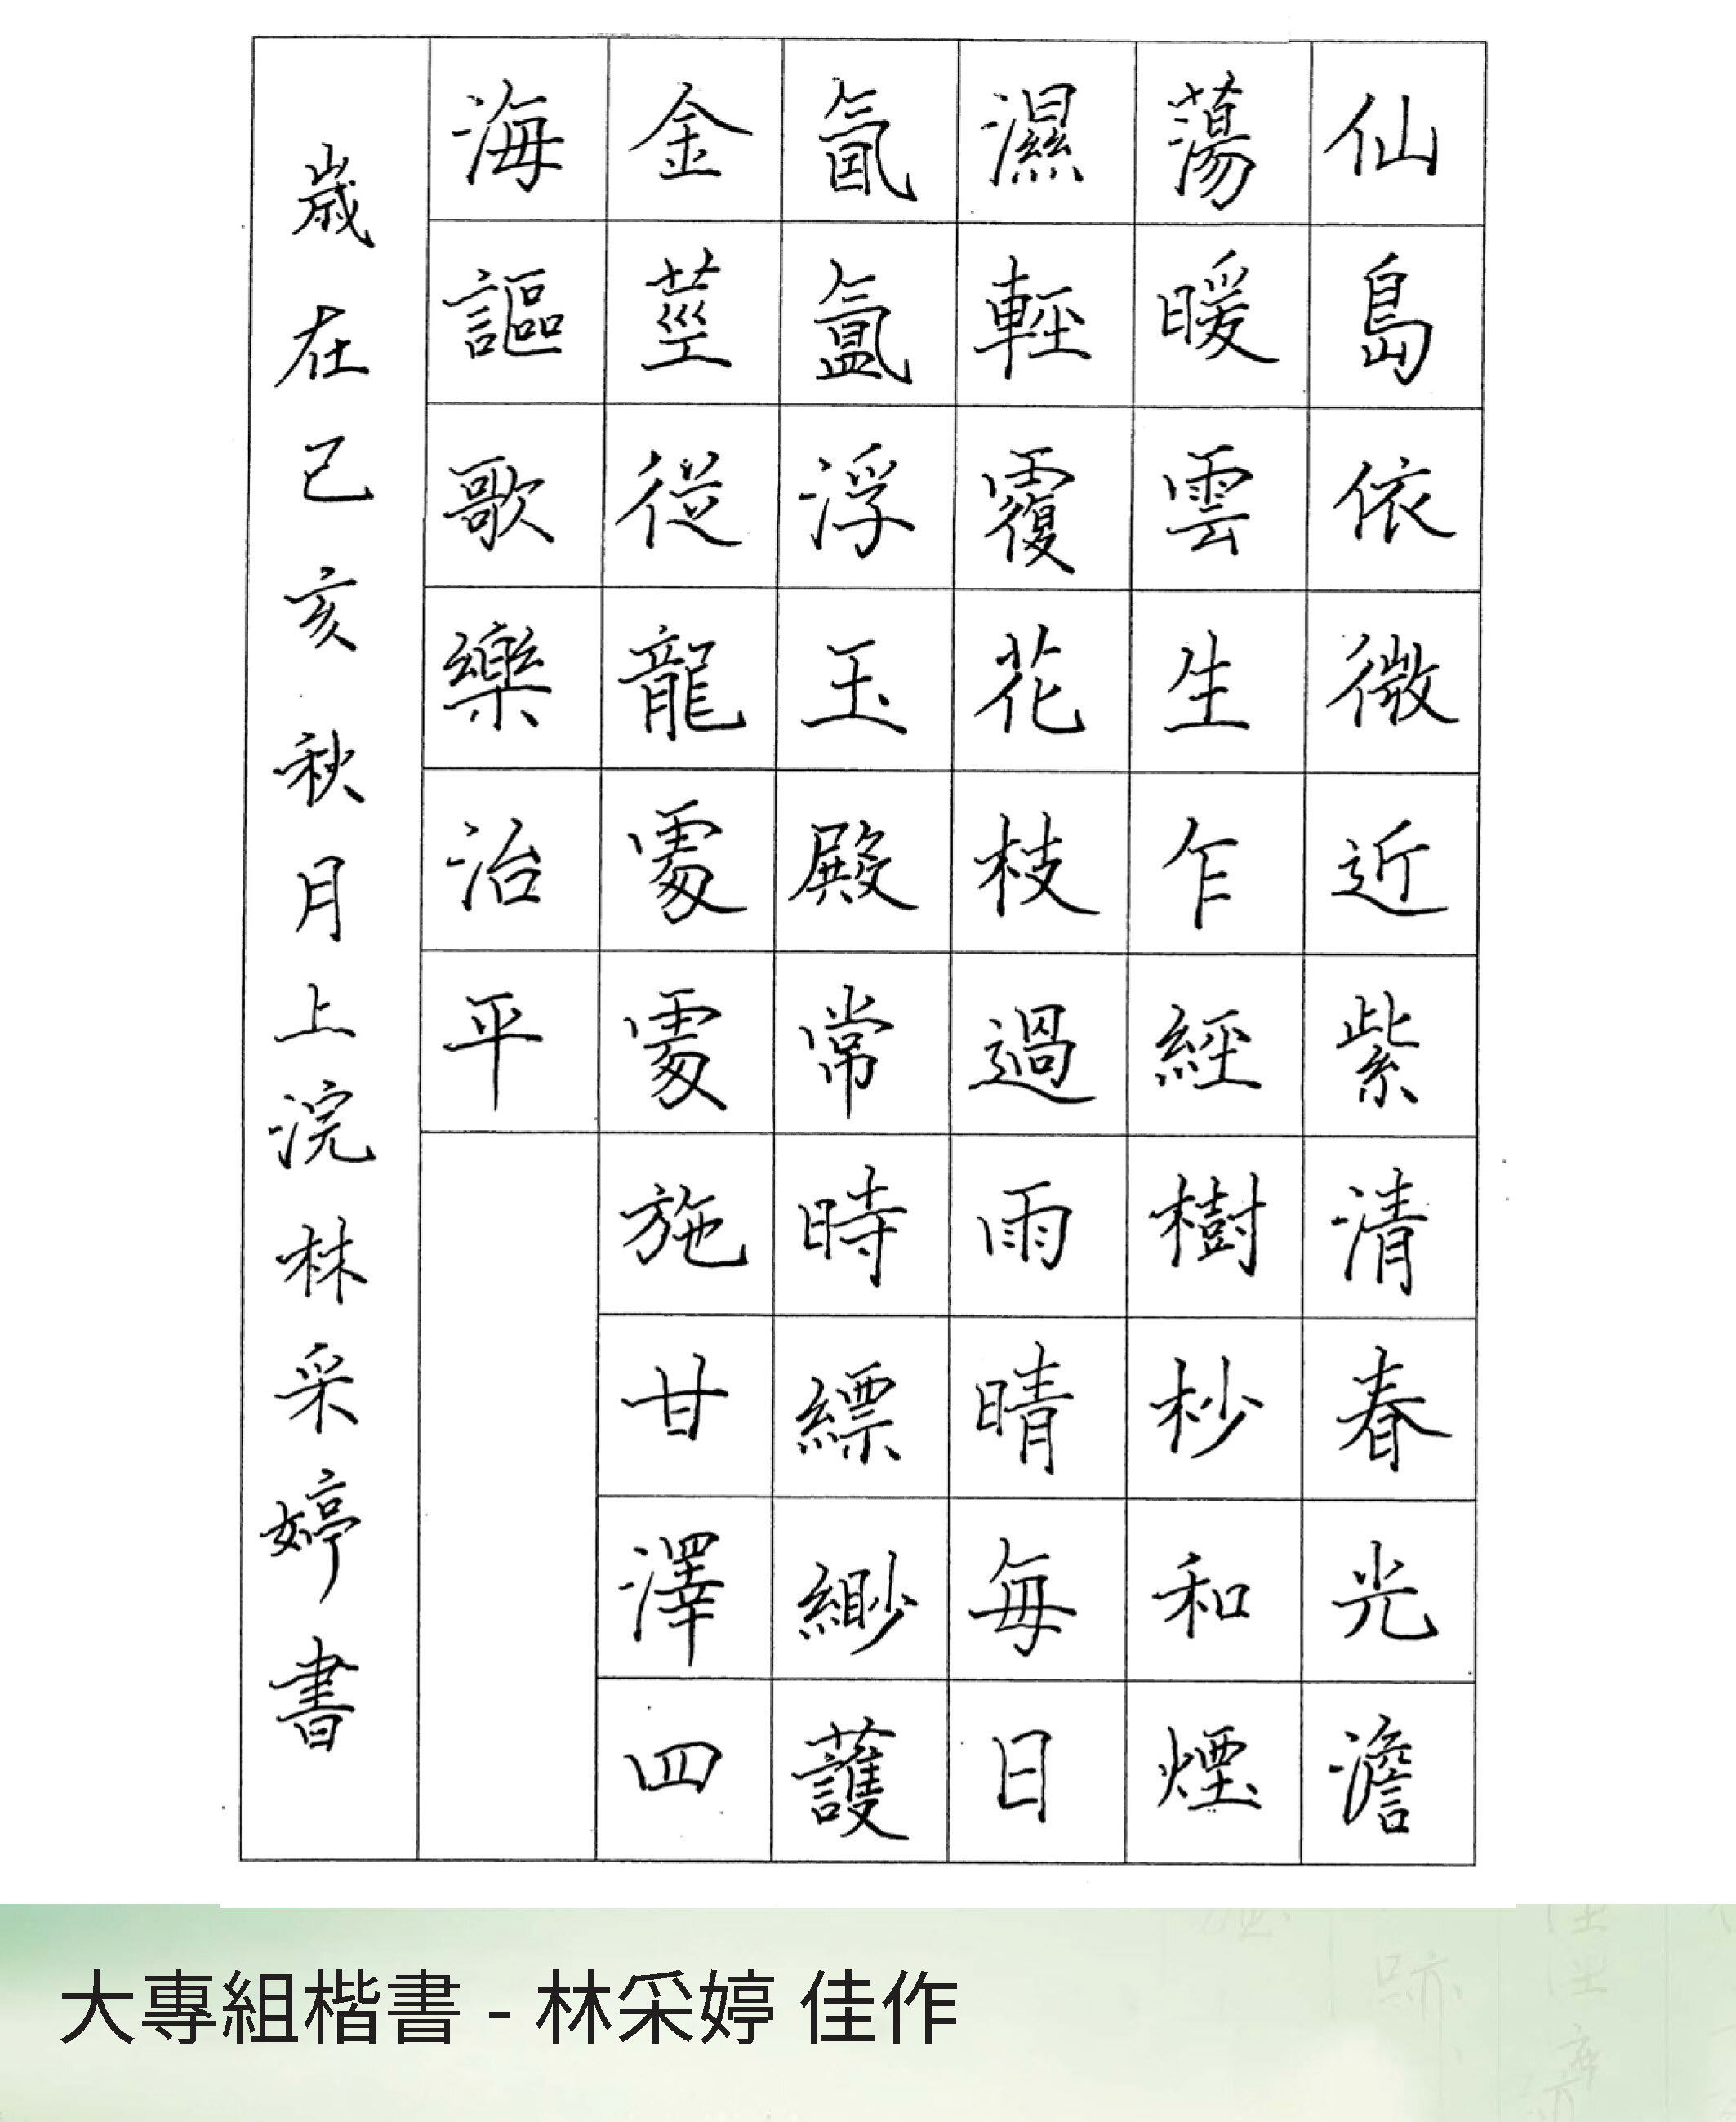 仙島依微近紫清春光澹
蕩暖雲生乍經樹杪和煙
濕輕覆花枝過雨晴每日
氤氳浮玉殿常時縹緲護
金莖從龍處處施甘澤四
海謳歌樂治平
歲在己亥秋月上浣林采婷書
大專組楷書 - 林采婷 佳作